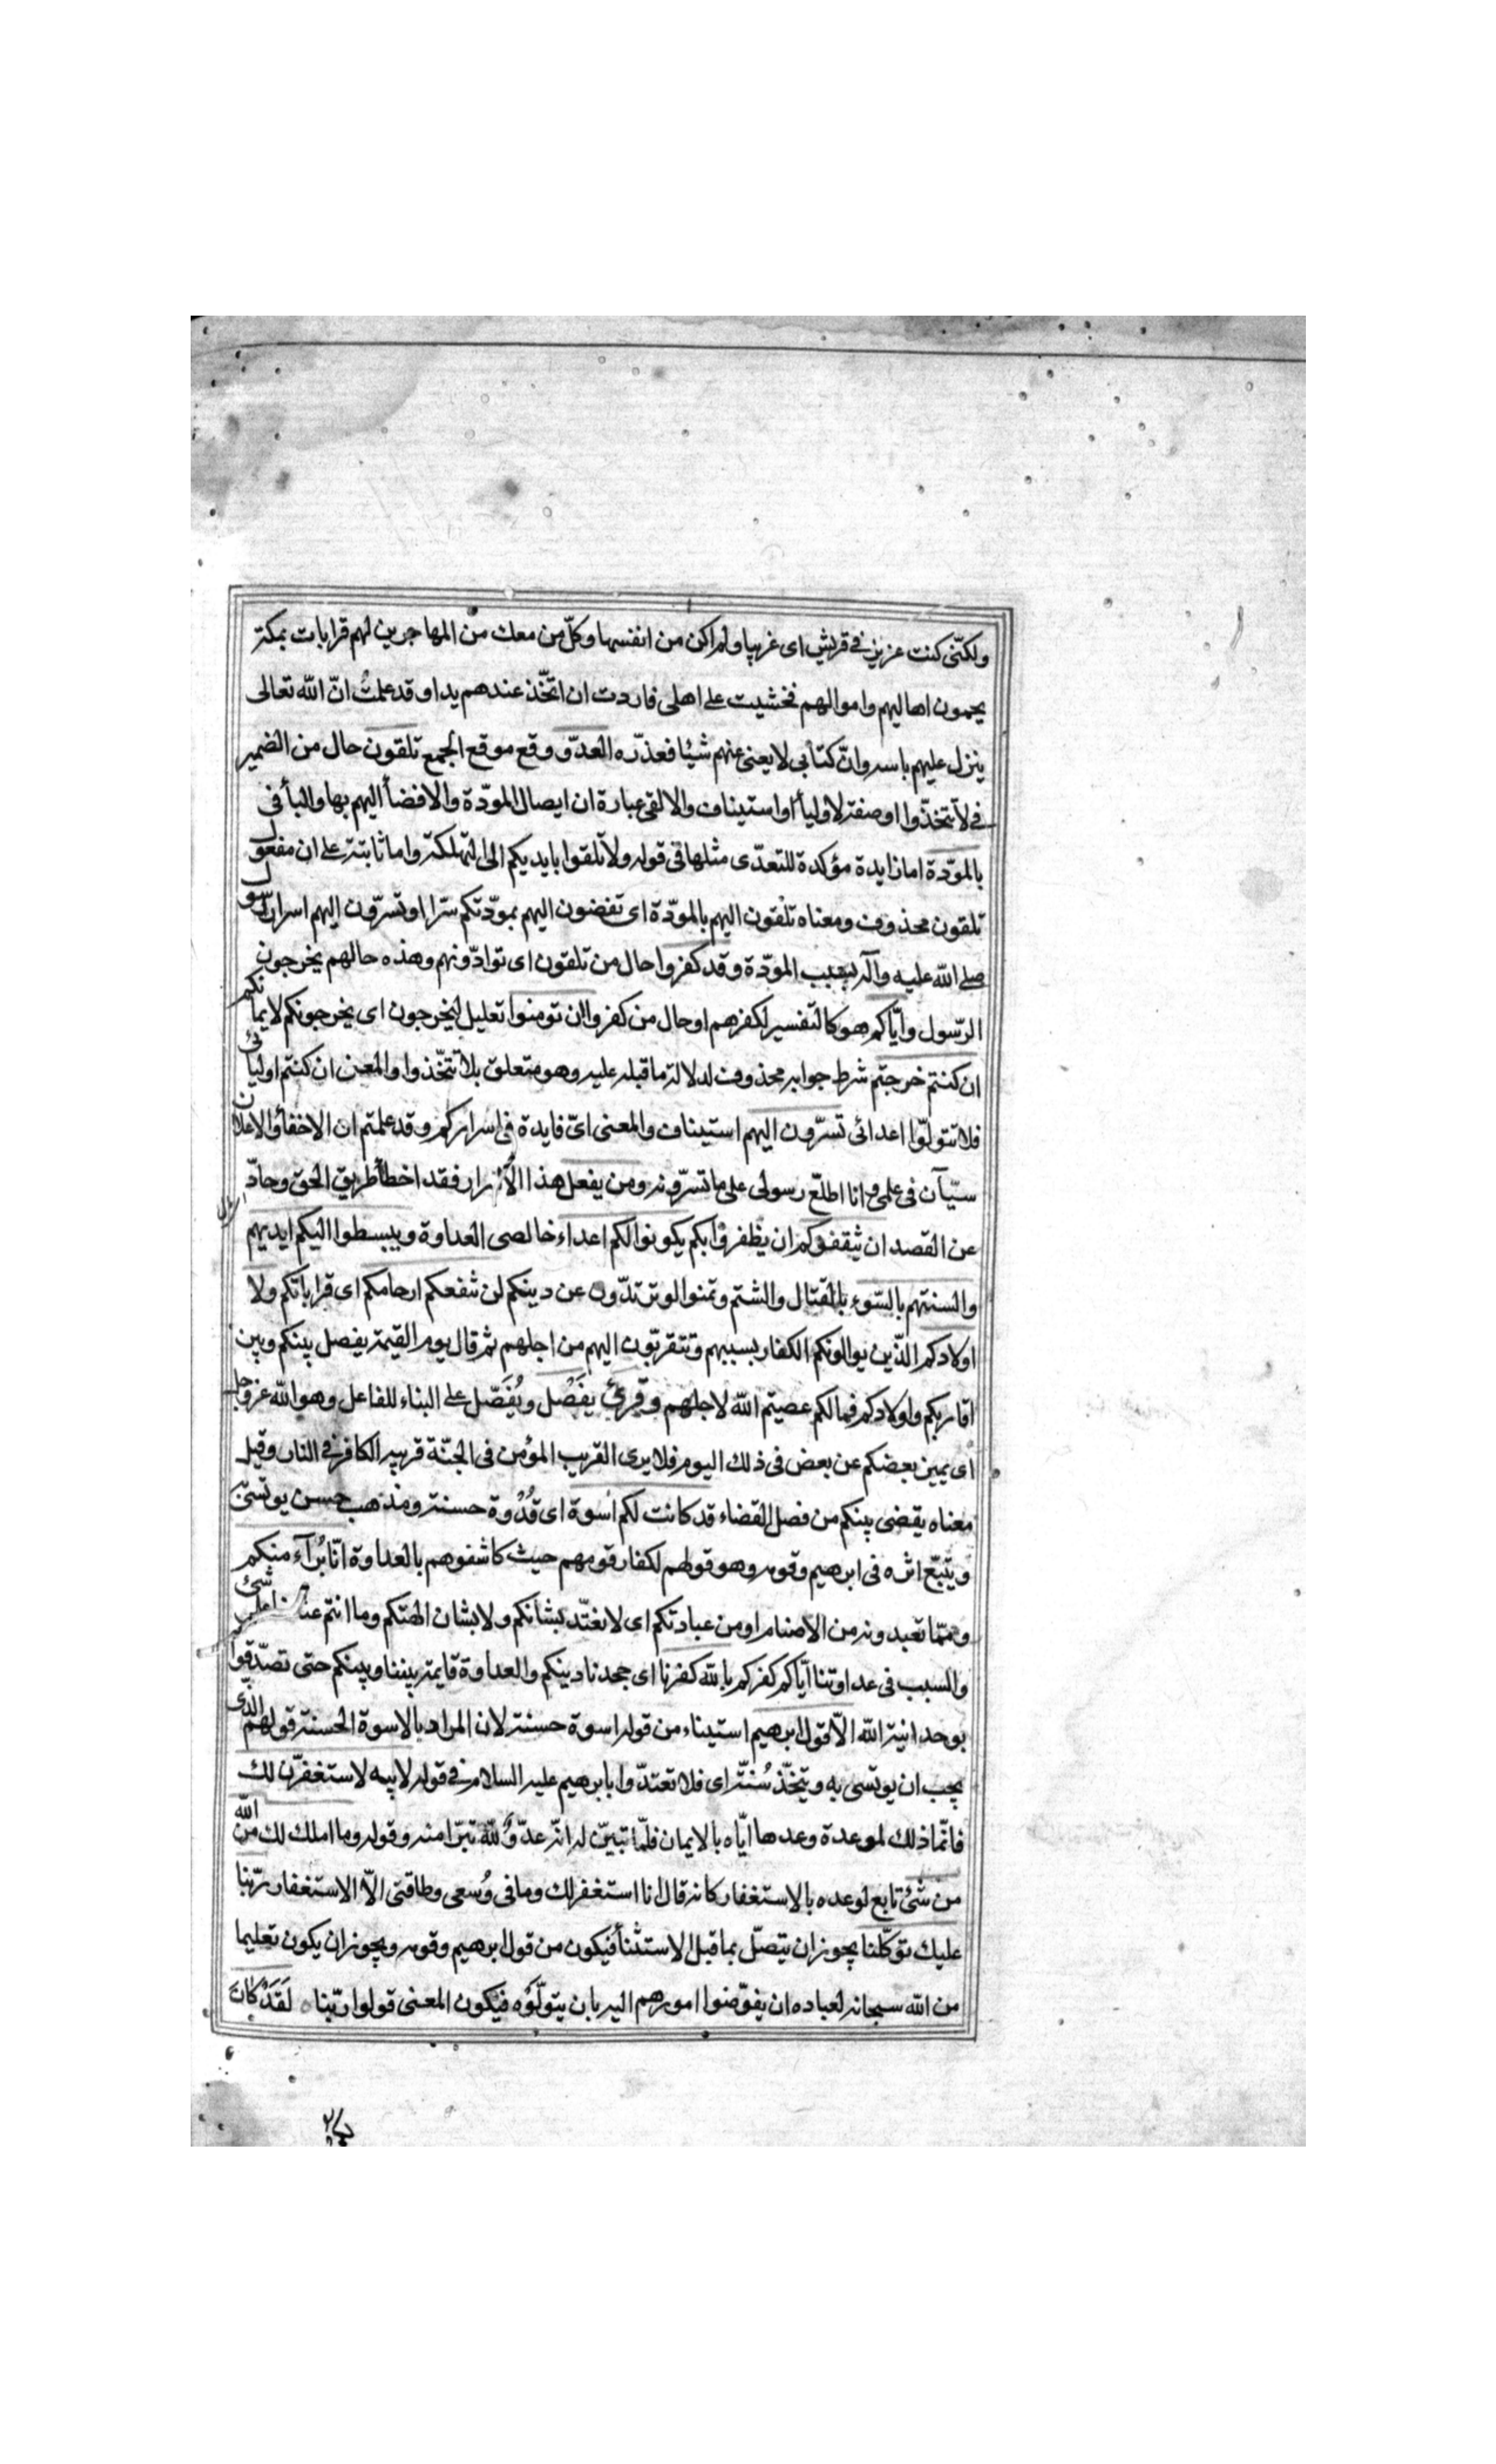 ولكنّى كنت عزيز فى قريش اى غريبا ولم اكن من انفسها وكلّ من معك من المهاجرين لهم قرابات بمكة
يحمون اهاليهم واموالهم فخشيت على اهلى فاردت ان اتخّذ عندهم يدا وقد علمتُ انّ الله تعالى
ينزل عليهم باسه وانّ كتابى لا يعنى عنهم شيئا فعذّره العدوّ وقع موقع الجمع تلقون حال من الضمير
فى لا تتخذّوا او صفة لاولياأ او استيناف والالقى عبارة ان ايصال المودّة والافضأ اليهم بها والبأ فى
بالمودّة اما زايدة مؤكدة للتعدّى مثلها فى قوله ولا تلقوا بايديكم الى التهلكة واما ثابتة على ان مفعول
تلقون محذوف ومعناه تلقون اليهم بالمودّة اى تفضون اليهم بمودّتكم سرّا او تسرّون اليهم اسرار رسول
صلى الله عليه وآله بسبب المودّة وقد كفروا حال من تلقون اى توادّونهم وهذه حالهم يخرجون
الرّسول وايّاكم هو كالتفسير لكفرهم او حال من كفروا ان تومنوا تعليل ليخرجون اى يخرجونكم لايمانكم
ان كنتم خرجتم شرط جوابه محذوف لدلالة ما قبله عليه وهو متعلق بلا تتخّذوا والمعنى ان كنتم اوليائى
فلا تتولّوا اعدائى تسرّون اليهم استيناف والمعنى اىّ فايدة فى اسراركم وقد علمتم ان الاخفأ والاعلان
سيّان فى علمى وانا اطلّع رسولى على ما تسرّونه ومن يفعل هذا الاسرار فقد اخطأ طريق الحق وحادّ
عن القصد ان يثقفوكم ان يظفروا بكم يكونوا لكم اعداء خالصى العداوة ويبسطوا اليكم ايديهم
والسنتهم بالسّوء بالقتال والشتم وتمنوا لو ترتدّون عن دينكم لن تنفعكم ارحامكم اى قراباتكم ولا
اولادكم الذّين يوالونكم الكفار بسببهم وتتقربّون اليهم من اجلهم ثم قال يوم القيمة يفصل بينكم وبين
اقاربكم واولادكم فما لكم عصيتم الله لاجلهم وقرئ يفَصْل ويُفَصّل على البناء للفاعل وهو الله عز وجل
اى يميز بعضكم عن بعض فى ذلك اليوم فلا يرى القريب المؤمن فى الجنّة قريبه الكافر فى النار وقيل
معناه يقضى بينكم من فصل القضاء قد كانت لكم اسوة اى قُدْوة حسنة ومذهب حسن يوتسىّ
ويتبّع اثره فى ابرهيم وقومه وهو قولهم لكفار قومهم حيث كاشفوهم بالعداوة انّا بُرآء منكم
وممّا تعبدونه من الاصنام او من عبادتكم اى لا نعتّد بشانكم ولا بشان الهتكم وما انتم عندنا على شئ
والسبب فى عداوتنا ايّاكم كفركم بالله كفرنا اى جحدنا دينكم والعداوة قايمة بيننا وبينكم حتى تصدّقوا
بوحدانية الله الاّ قول ابرهيم استيناء من قوله اسوة حسنة لان المراد بالاسوة الحسنة قولهم الذّى
يجب ان يوتسى به ويتخّذ سُنتّه اى فلا تعتدّوا بابرهيم عليه السلام فى قوله لابيه لاستغفرّن لك
فانّما ذلك لموعدة وعدها ايّاه بالايمان فلمّا تبيّن له انّه عدّوٌ للّه تبرّا منه وقوله وما املك لك من الله
من شئ تابع لوعده بالاستغفار كانه قال انا استغفر لك وما فى وُسعى وطاقتى الاّ الاستغفار ربّنا
عليك توكّلنا يجوز ان يتصّل بما قبل الاستثنأ فيكون من قول ابرهيم وقومه ويجوز ان يكون تعليما
من الله سبحانه لعباده ان يفوّضوا امورهم اليه بان يتولّوه فيكون المعنى قولوا ربّنا ه لَقَدْ كانَ